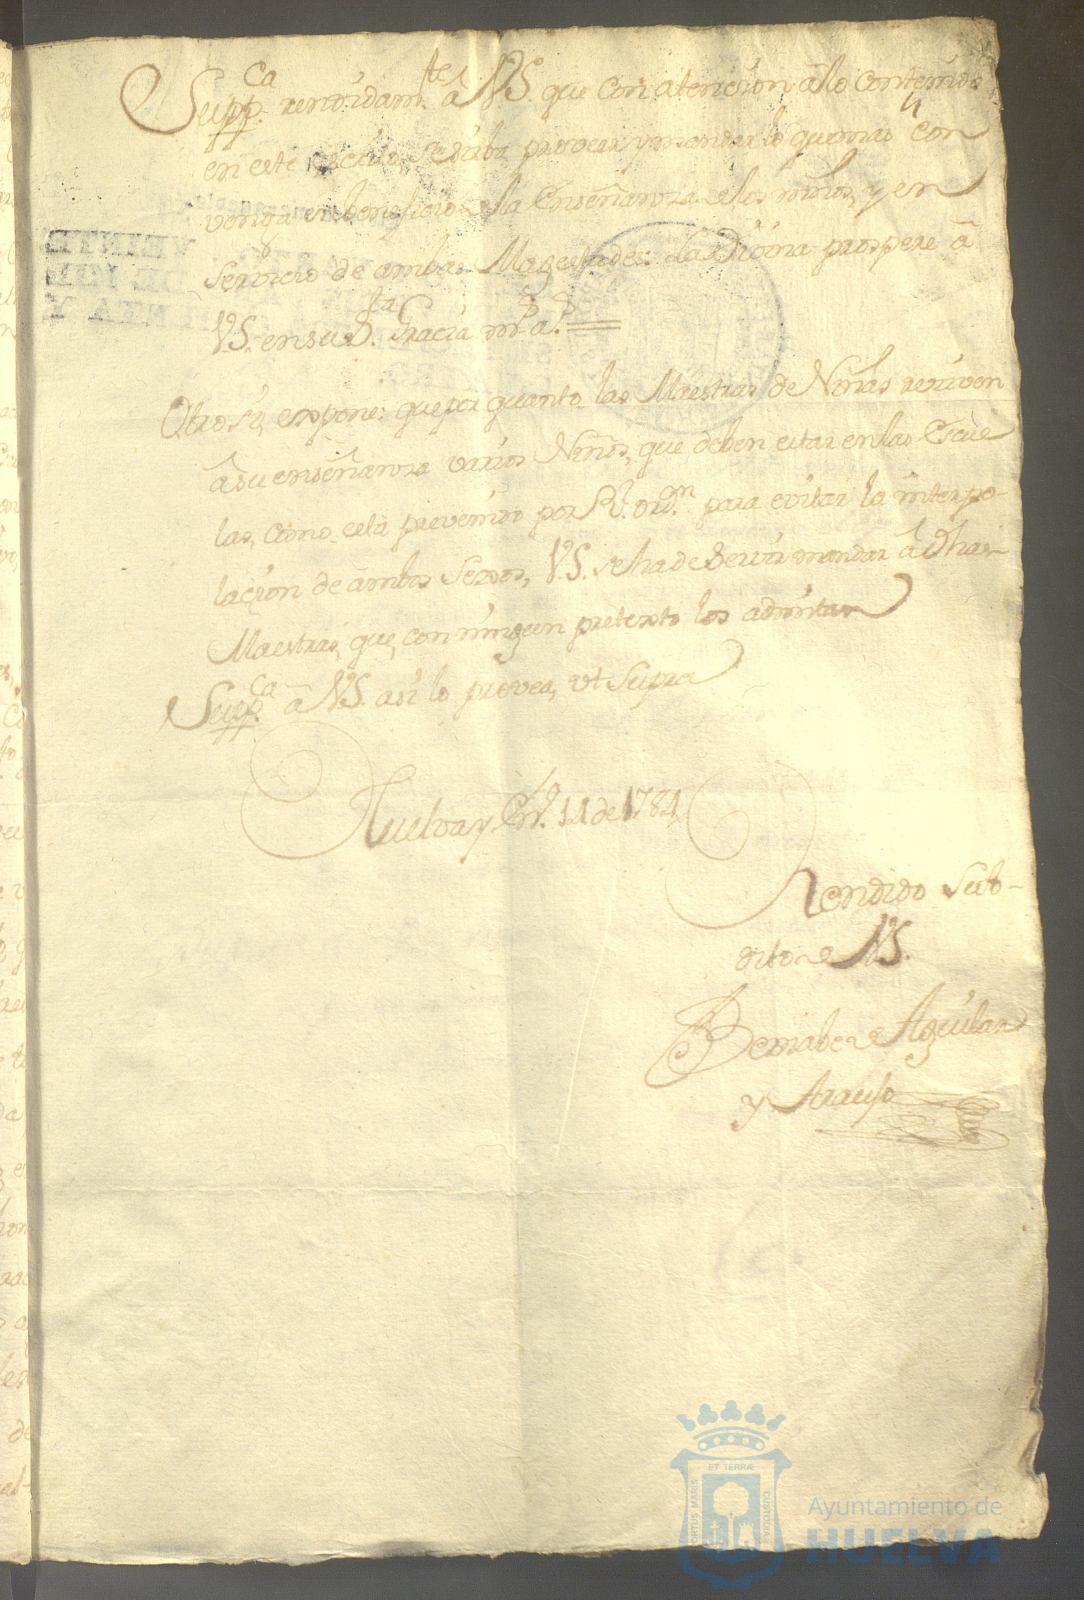 Supp.ca rendidam.te â V.S. que con atencion âlo contenido
en este escrito, se sirba proveer y mandar lo que mas con
venga en beneficio de la Enseñanza de los niños, y en
servicio de ambas Magestades: La Divina prospere â
V.S. en su D.ra Gracia m.s a.s
Otro si, expone: que por quanto las Maestras de Niñas reziven
âsu enseñanza varios Niños, que deben estar en las Escue
las, como está prevenido por R.l ord.n para evitar la interpo-
lacion de âmbos sexos, V.S. se ha de servir mandar â dhas
Maestras, que, con ningun pretexto los admitan
Supp.ca â V.S. asi lo provea, ut supra
Huelva y En.o 11 de 1784
Rendido sub-
dito de V.S.
Bernabe de Aguilar
y Araujo
ET TERRÆ
PORTUS MARIS
CUSTODIA
Ayuntamiento de
HUELVA